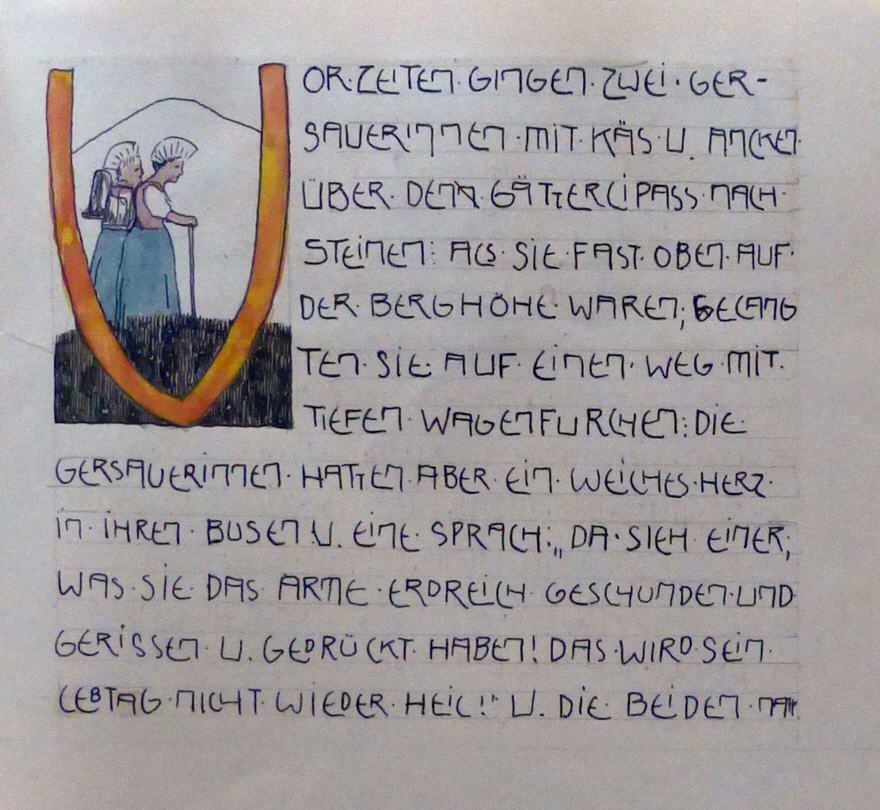 VOR·ZEITEN·GINGEN·ZWEI·GER-
SAUERINNEN·MIT·KÄS·U. ANCKEN
ÜBER·DEN·GÄTTERLIPASS·NACH·
STEINEN: ALS·SIE·FAST·OBEN·AUF·
DER·BERGHÖHE·WAREN; GELANG
TEN·SIE·AUF·EINEN·WEG·MIT·
TIEFEN·WAGENFURCHEN: DIE·
GERSAUERINNEN·HATTEN·ABER·EIN·WEICHES·HERZ·
IN·IHREN·BUSEN·U. EINE·SPRACH: „DA·SIEH·EINER;
WAS·SIE·DAS·ARME·ERDREICH·GESCHUNDEN·UND
GERISSEN·U. GEDRÜCKT·HABEN! DAS·WIRD·SEIN·
LEBTAG·NICHT·WIEDER·HEIL!" U. DIE·BEIDEN·